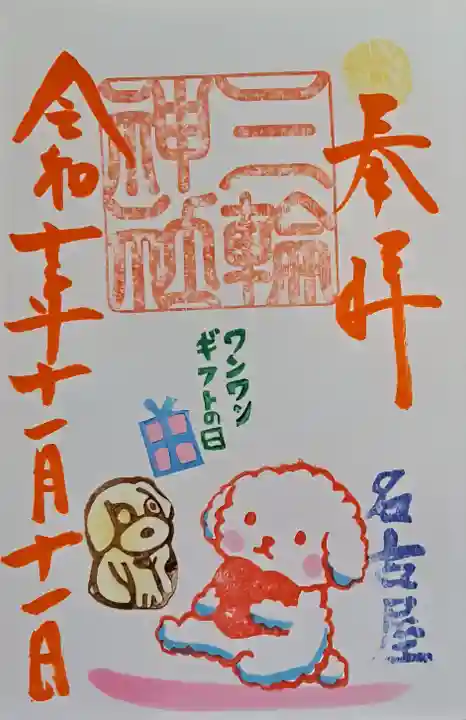 奉拝
三輪
神社
名古屋
ワンワン
ギフトの日
令和年十一月十一日